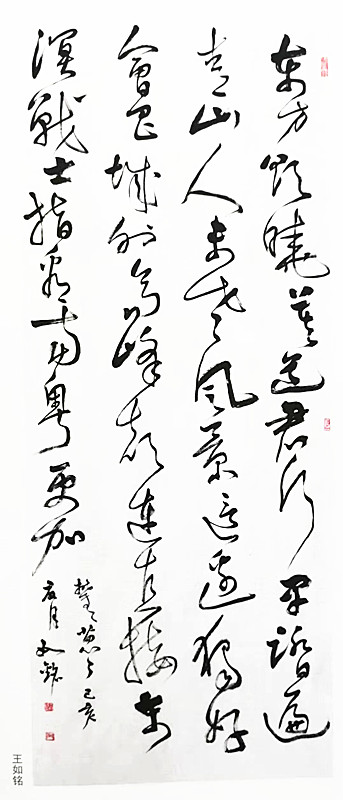 东方欲晓莫道君行早踏遍
青山人未老风景这边独好
会昌城外高峰颠连直接东
溟战士指看南粤更加
郁郁葱葱己亥
王如铭